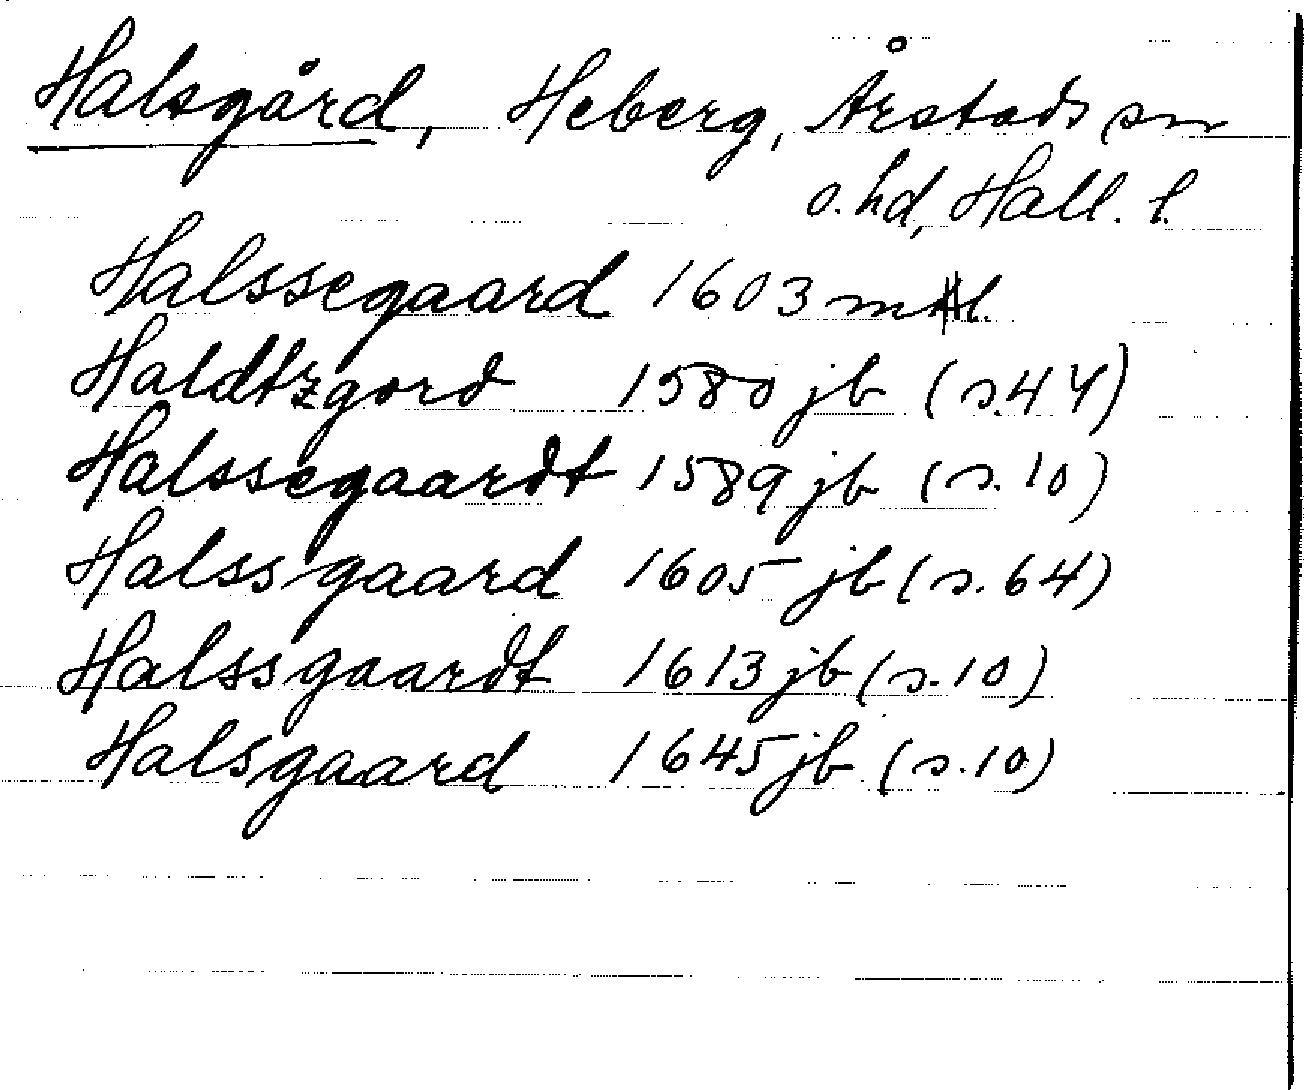 Halsgård, Heberg, Årstads sn
o. hd, Hall. l.
Halssegaard 1603
Haldtzgord 1580 jb (s.44)
Halssegaardt 1589 jb (s.10)
Halssgaard 1605 jb (s.64)
Halssgaardt 1613 jb (s.10)
Halsgaard 1645 jb (s.10)